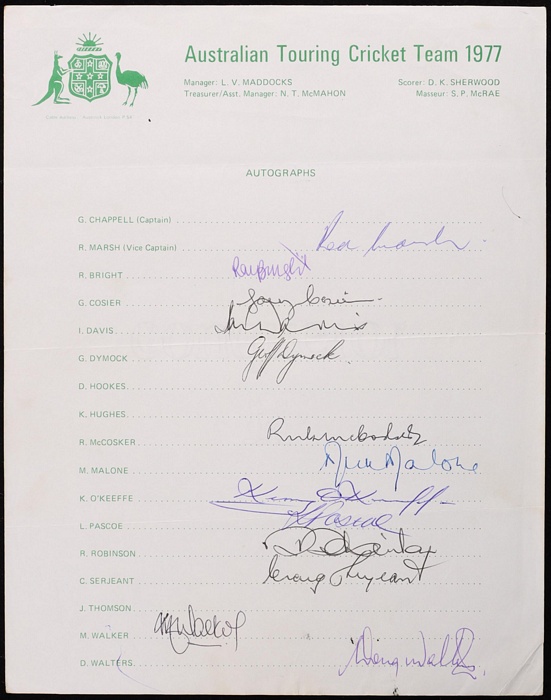 Australian Touring Cricket Team 1977
Manager: L. V. MADDOCKS Scorer: D. K. SHERWOOD
Treasurer/Asst. Manager: N. T. McMAHON Masseur: S. P. McRAE
AUTOGRAPHS
G. CHAPPELL (Captain)
R. MARSH (Vice Captain) Rod Marsh
R. BRIGHT Ray Bright
G. COSIER Gary Cosier
I. DAVIS Ian Davis
G. DYMOCK Geoff Dymock
D. HOOKES
K. HUGHES
R. McCOSKER
M. MALONE Mick Malone
K. O'KEEFFE
L. PASCOE L Pascoe
R. ROBINSON
C. SERJEANT Craig Serjeant
J. THOMSON
M. WALKER M Walker
D. WALTERS Doug Walters